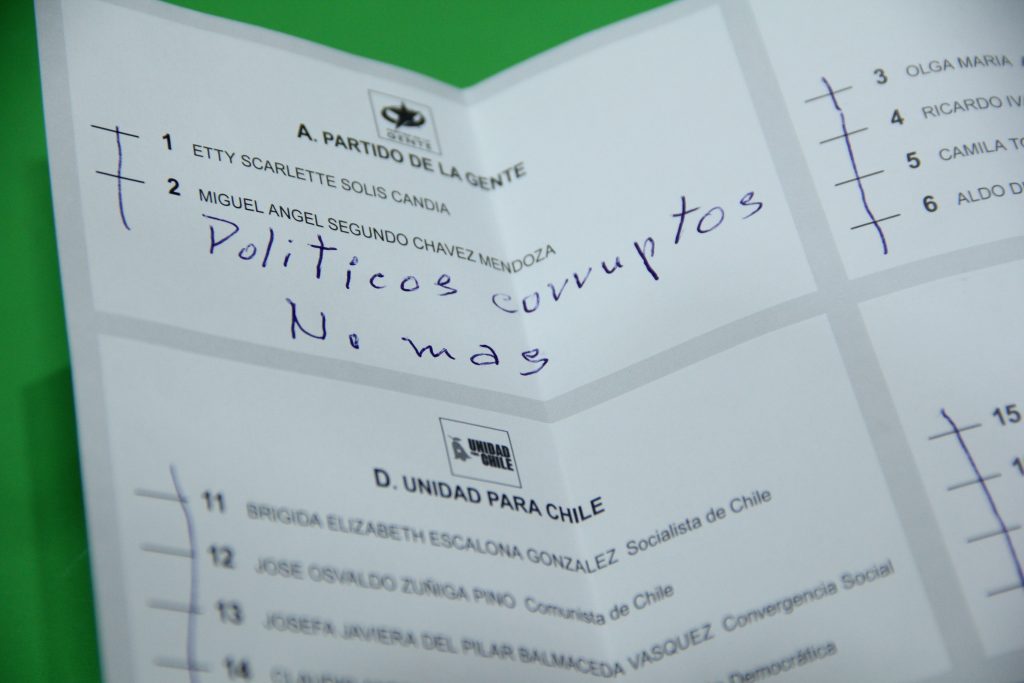 GENTE
A. PARTIDO DE LA GENTE
1 ETTY SCARLETTE SOLIS CANDIA
2 MIGUEL ANGEL SEGUNDO CHAVEZ MENDOZA
Politicos corruptos
No mas
3 OLGA MARIA
4 RICARDO
5 CAMILA
6 ALDO
UNIDAD
CHILE
D. UNIDAD PARA CHILE
11 BRIGIDA ELIZABETH ESCALONA GONZALEZ Socialista de Chile
12 JOSE OSVALDO ZUÑIGA PINO Comunista de Chile
13 JOSEFA JAVIERA DEL PILAR BALMACEDA VASQUEZ Convergencia Social
14 Democrática
15